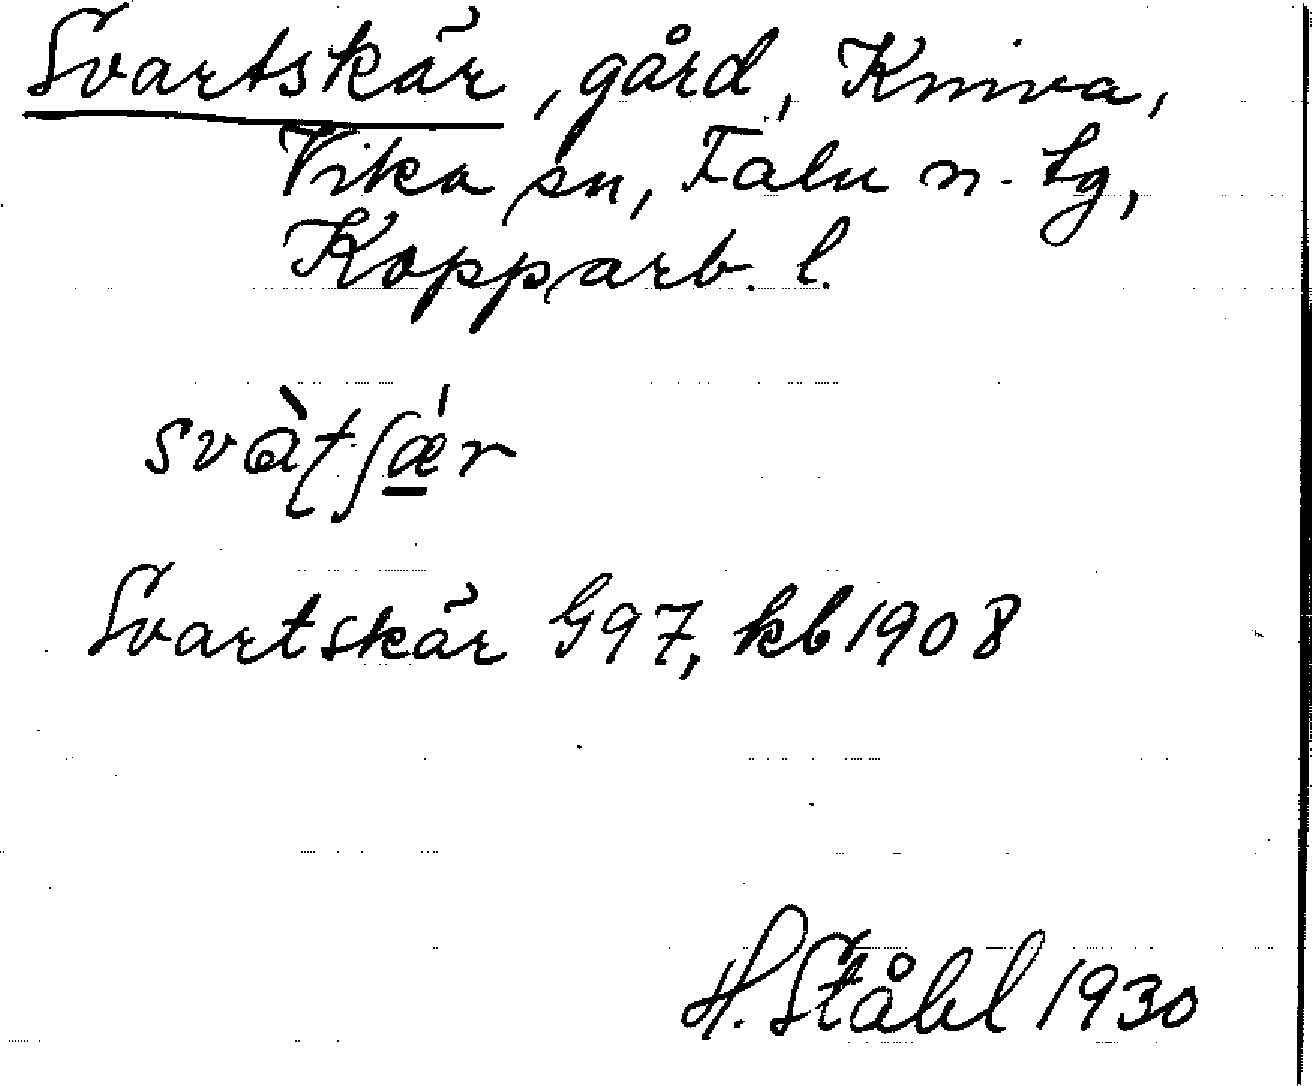 Svartskär, gård, Kniva,
Vika sn, Falu n. tg,
Kopparb. l.
svɑ̀ʈʃǽ̠r
Svartskär G97, kb 1908
H. Ståhl 1930